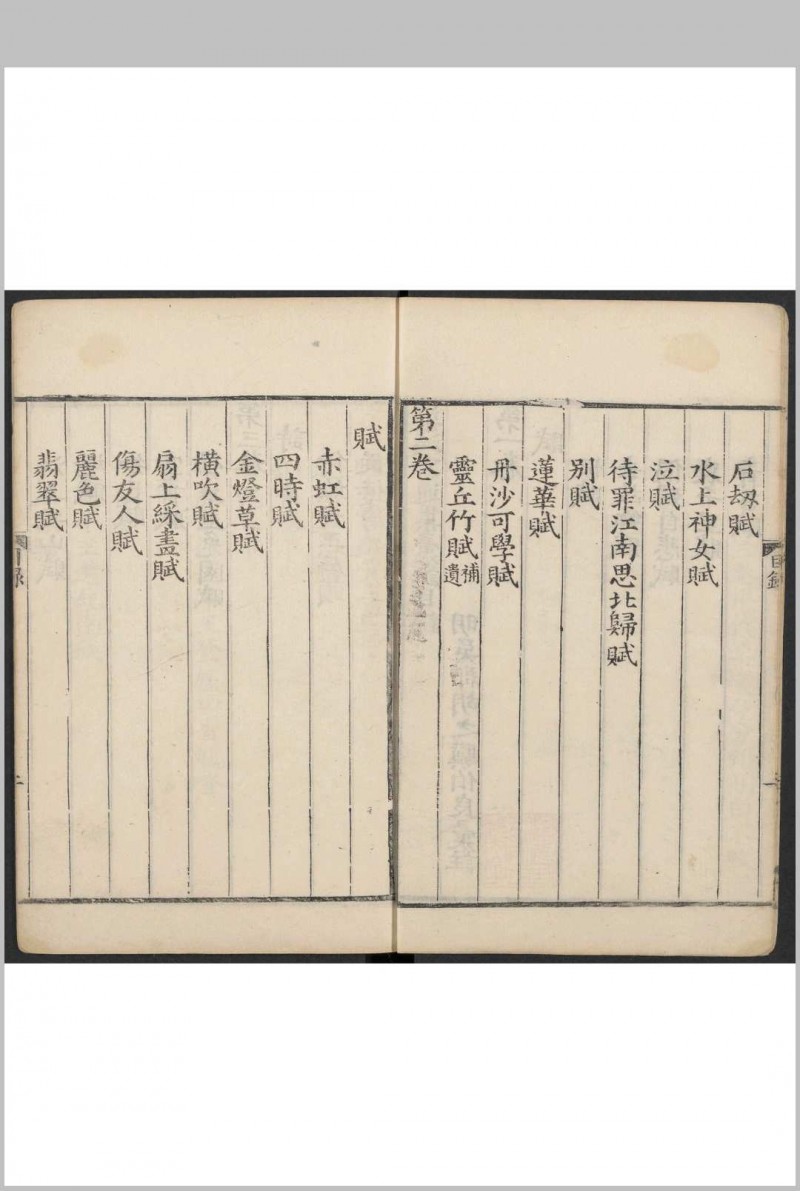 石劫賦
水上神女賦
泣賦
待罪江南思北歸賦
别賦
蓮華賦
丹沙可學賦
靈丘竹賦補遺
第二卷
賦
赤虹賦
四時賦
金燈草賦
橫吹賦
扇上綵畫賦
傷友人賦
麗色賦
翡翠賦
目錄